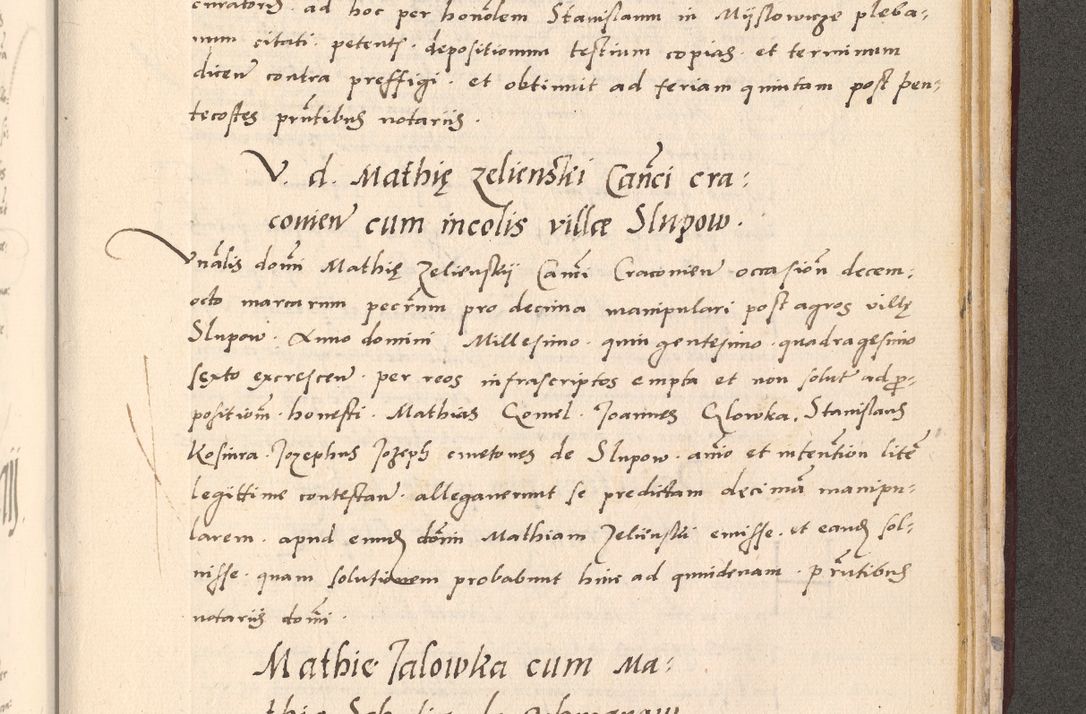 curatoris · ad hoc per honolem Stanislaum in Mijslowicze pleba:
num citati · petentis · depositionum testium copias · et terminum
dicen contra preffigi · et obtinuit ad feriam quintam post pen:
tecostes pntibus notariis ·
V. d. Mathię Zelienski Canci cra:
covien cum incolis villæ Slupow ·
Vnalis domi Mathię Zelienskij Canci Cracovien occasion decem:
octo marcarum pecrum pro decima manipulari post agros villę
Slupow · Anno domini Millesimo · quingentesimo · quadragesimo
sexto excrescen · per reos infrascriptos empta et non solut ad pro:
positiom · honesti · Mathias Gomel · Joannes Glowka, Stanislaus
Kosmra · Jozephus Jozeph cmetones de Slupow · anio et intention lite
legittime contestan · allegaverunt se predictam decimam manipu:
larem · apud eund domin Mathiam Zelienski emisse · et eand sol:
visse · quam solutionem probabunt hinc ad quindenam · prntibus
notariis domi ·
Mathie Jalowka cum Ma: